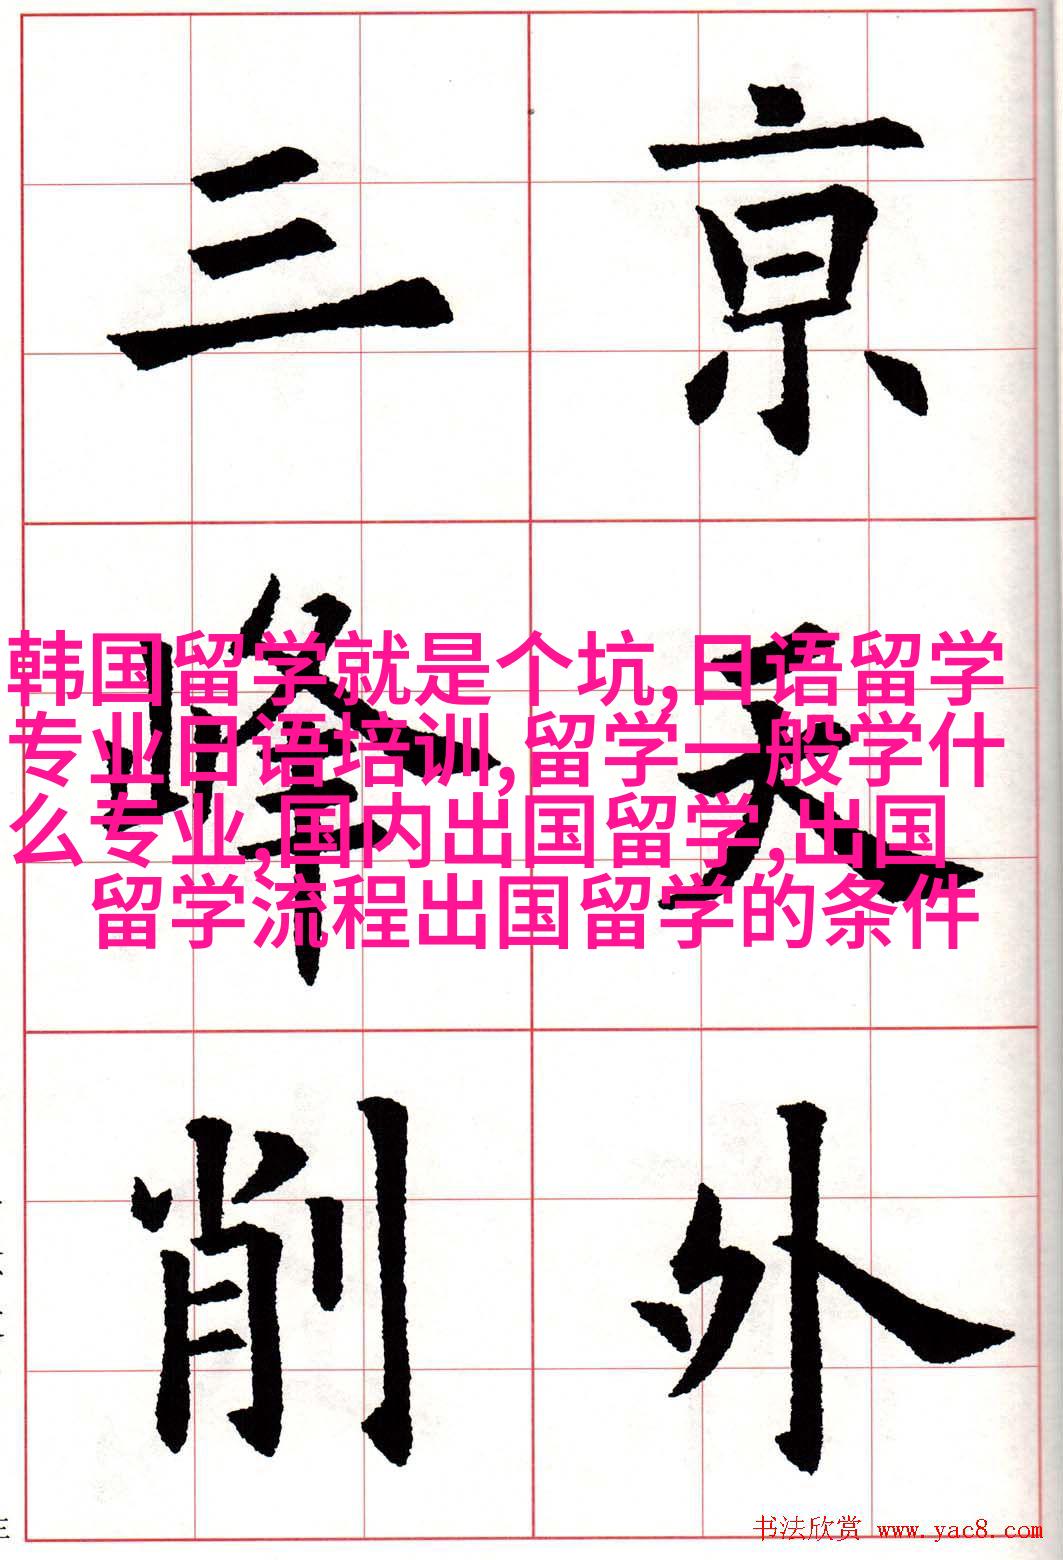 亰天外
三峰削
韩国留学就是个坑,日语留学
专业日语培训,留学一般学什
么专业,国内出国留学,出国
留学流程出国留学的条件
书法欣赏 www.yac8.com